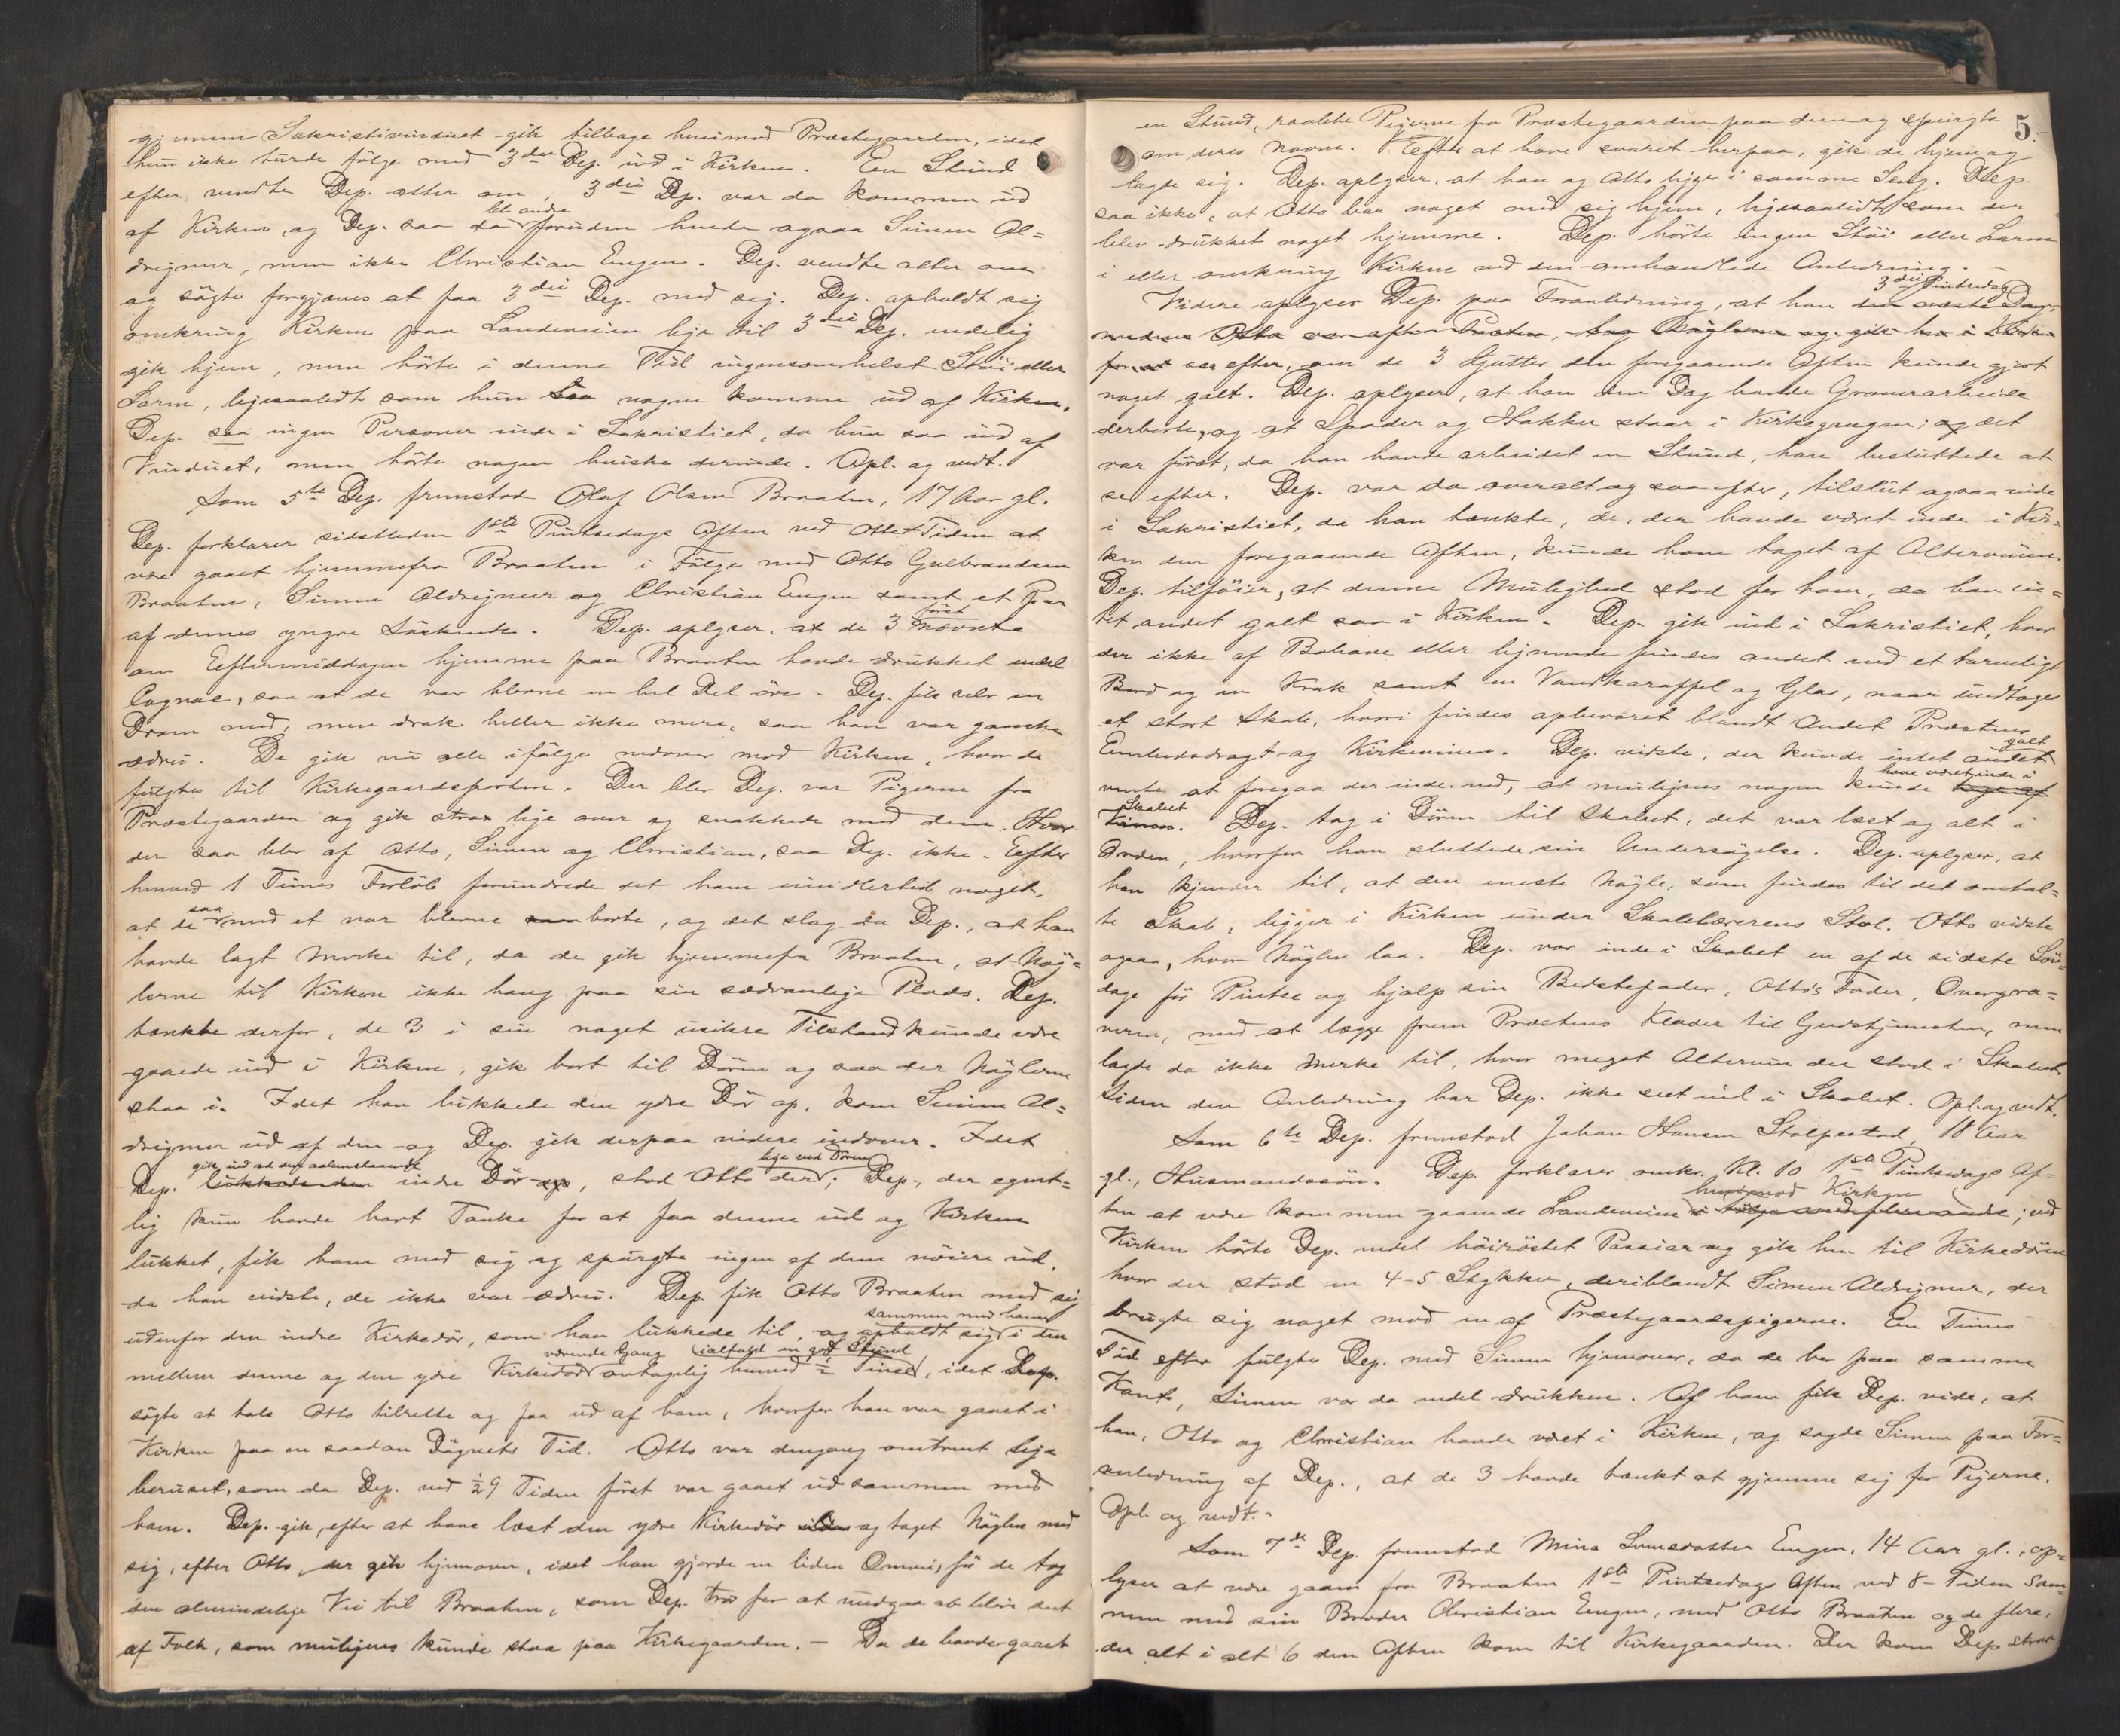 gjennem Sakristivinduet gik tilbage henimod Præstegaarden, idet
hun ikke turde følge med 3die Dep. ind i Kirken. En Stund
efter vendte Dep. atter om, 3die Dep. var da kommen ud
af Kirken, og Dep. saa da bl. andre foruden hende ogsaa Simen Al=
drigmer, men ikke Christian Engen. Dep. vendte atter om
og søgte forgjæves at faa 3die Dep. med sig. Dep. opholdt sig
omkring Kirken paa Landeveien lige til 3die Dep. endelig
gik hjem, men hørte i denne Tid ingensomhelst Støi eller
Larm, ligesaalidt som hun saa nogen komme ud af Kirken.
Dep. saa ingen Personer inde i Sakristiet, da hun saa ind af
Vinduet, men hørte nogen hviske derinde. Opl. og vedt.
Som 5te Dep. fremstod Olaf Olsen Braaten, 17 Aar gl.
Dep. forklarer sidstleden 1ste Pintsedags Aften ved Otte-Tiden at
være gaaet hjemmefra Braaten i Følge med Otto Gulbrandsen
Braaten, Simen Aldrigmer og Christian Engen samt et Par
af dennes yngre Søskende. Dep. oplyser, at de 3 først nævnte
om Eftermiddagen hjemme paa Braaten havde drukket endel
Cognac, saa at de var blevne en hel Del øre. Dep. fik selv en
Dram med, men drak heller ikke mere, saa han var ganske
ædru. De gik nu alle ifølge nedover mod Kirken, hvor de
fulgtes til Kirkegaardsporten. Der blev Dep. var Pigerne fra
Præstegaarden og gik strax lige over og snakkede med dem. Hvor
der saa blev af Otto, Simen og Christian, saa Dep. ikke. Efter
henved 1 Times Forløb forundrede det ham imidlertid noget,
at de saa med et var blevne borte, og det slog da Dep., at han
havde lagt Mærke til, da de gik hjemmefra Braaten, at Nøg=
lerne til Kirken ikke hang paa sin sædvanlige Plads. Dep.
tænkte derfor, de 3 i sin noget usikre Tilstand kunde være
gaaede ind i Kirken, gik bort til Døren og saa der Nøglerne
staa i. Idet han lukkede den ydre Dør op, kom Simen Al=
drigmer ud af den og Dep. gik derpaa videre indover. Idet
Dep. gik ind ad den aabenstaaende lukkede den indre Dør op, stod Otto der lige ved Døren; Dep., der egent=
lig kun havde havt Tanke for at faa denne ud og Kirken
lukket, fik ham med sig og spurgte ingen af dem nøiere ud,
da han vidste, de ikke var ædru. Dep. fik Otto Braaten med sig
udenfor den indre Kirkedør, som han lukkede til, og opholdt sig sammen med ham i den
mellem denne og den ydre Kirkedør værende Gang antagelig henved ½ Time (ialfald en god Stund), idet Dep.
søgte at tale Otto tilrette og faa ud af ham, hvorfor han var gaaet i
Kirken paa en saadan Døgnets Tid. Otto var dengang omtrent lige
beruset, som da Dep. ved ½9 Tiden først var gaaet ud sammen med
ham. Dep. gik, efter at have læst den ydre Kirkedør og taget Nøglen med
sig, efter Otto, der gik hjemover, idet han gjorde en liden Omvei, før de tog
den almindelige Vei til Braaten, som Dep. tror for at undgaa at blive seet
af Folk, som muligens kunde staa paa Kirkegaarden. – Da de havde gaaet
5.
en Stund, raabte Pigerne fra Præstegaarden paa dem og spurgte
om deres Navne. Efter at have svaret herpaa, gik de hjem og
lagde sig. Dep. oplyser, at han og Otto ligger i samme Seng. Dep.
saa ikke, at Otto bar noget med sig hjem, ligesaalidt som der
blev drukket noget hjemme. Dep. hørte ingen Støi eller Larm
i eller omkring Kirken ved den omhandlede Anledning. –
Videre oplyser Dep. paa Foranledning, at han den næste Dag 3die Pintsedag,
medens Otto var efter Præsten, tog Nøglerne og gik hen i Kirken
for at saa efter, om de 3 Gutter den foregaaende Aften kunde gjort
noget galt. Dep. oplyser, at han den Dag havde Graverarbeide
derborte, og at Spader og Hakker staar i Kirkegangen; og det
var først, da han havde arbeidet en Stund, han besluttede at
se efter. Dep. var da overalt og saa efter, tilslut ogsaa inde
i Sakristiet, da han tænkte, de, der havde været inde i Kir=
ken den foregaaende Aften, kunde have taget af Altervinen.
Dep. tilføier, at denne Mulighed stod for ham, da han in=
tet andet galt saa i Kirken. Dep. gik ind i Sakristiet, hvor
der ikke af Bohave eller lignende findes andet end et tarveligt
Bord og en Krak samt en Vandkaraffel og Glas, naar undtages
et stort Skab, hvori findes opbevaret blandt Andet Præstens
Embedsdragt og Kirkevinen. Dep. vidste, der kunde intet andet galt
ventes at foregaa der inde end, at muligens nogen kunde tage af have været inde i
Vinen. Skabet Dep. tog i Døren til Skabet, det var læst og alt i
Orden, hvorfor han sluttede sin Undersøgelse. Dep. oplyser, at
han kjender til, at den eneste Nøgle, som findes til det omtal=
te Skab, ligger i Kirken under Skolelærerens Stol. Otto vidste
ogsaa, hvor Nøglen laa. Dep. var inde i Skabet en af de sidste Søn=
dage før Pintse og hjalp sin Bedstefader, Otto's Fader, Overgra=
veren, med at lægge frem Præstens Klæder til Gudstjenesten, men
lagde da ikke Mærke til, hvor meget Altervin der stod i Skabet.
Siden den Anledning har Dep. ikke seet ind i Skabet. Opl. og vedt.
Som 6te Dep. fremstod Johan Hansen Stolpestad, 18 Aar
gl., Husmandssøn. Dep. forklarer omkr. Kl. 10 1ste Pintsedags Af=
ten at være kommen gaaende Landeveien henimod Kirken i Følge med flere andre; ved
Kirken hørte Dep. endel høirøstet Passiar og gik hen til Kirkedøren
hvor der stod en 4-5 Stykker, deriblandt Simen Aldrigmer, der
brugte sig noget mod en af Præstegaardspigerne. En Times
Tid efter fulgte Dep. med Simen hjemover, da de bor paa samme
Kant, Simen var da endel drukken. Af ham fik Dep. vide, at
han, Otto og Christian havde været i Kirken, og sagde Simen paa For=
anledning af Dep., at de 3 havde tænkt at gjemme sig for Pigerne.
Opl. og vedt. –
Som 7de Dep. fremstod Mina Svensdatter Engen, 14 Aar gl., op=
lyser at være gaaen fra Braaten 1ste Pintsedags Aften ved 8-Tiden sam=
men med sin Broder Christian Engen, med Otto Braaten og de flere,
der alt i alt 6 den Aften kom til Kirkegaarden. Der kom Dep strax